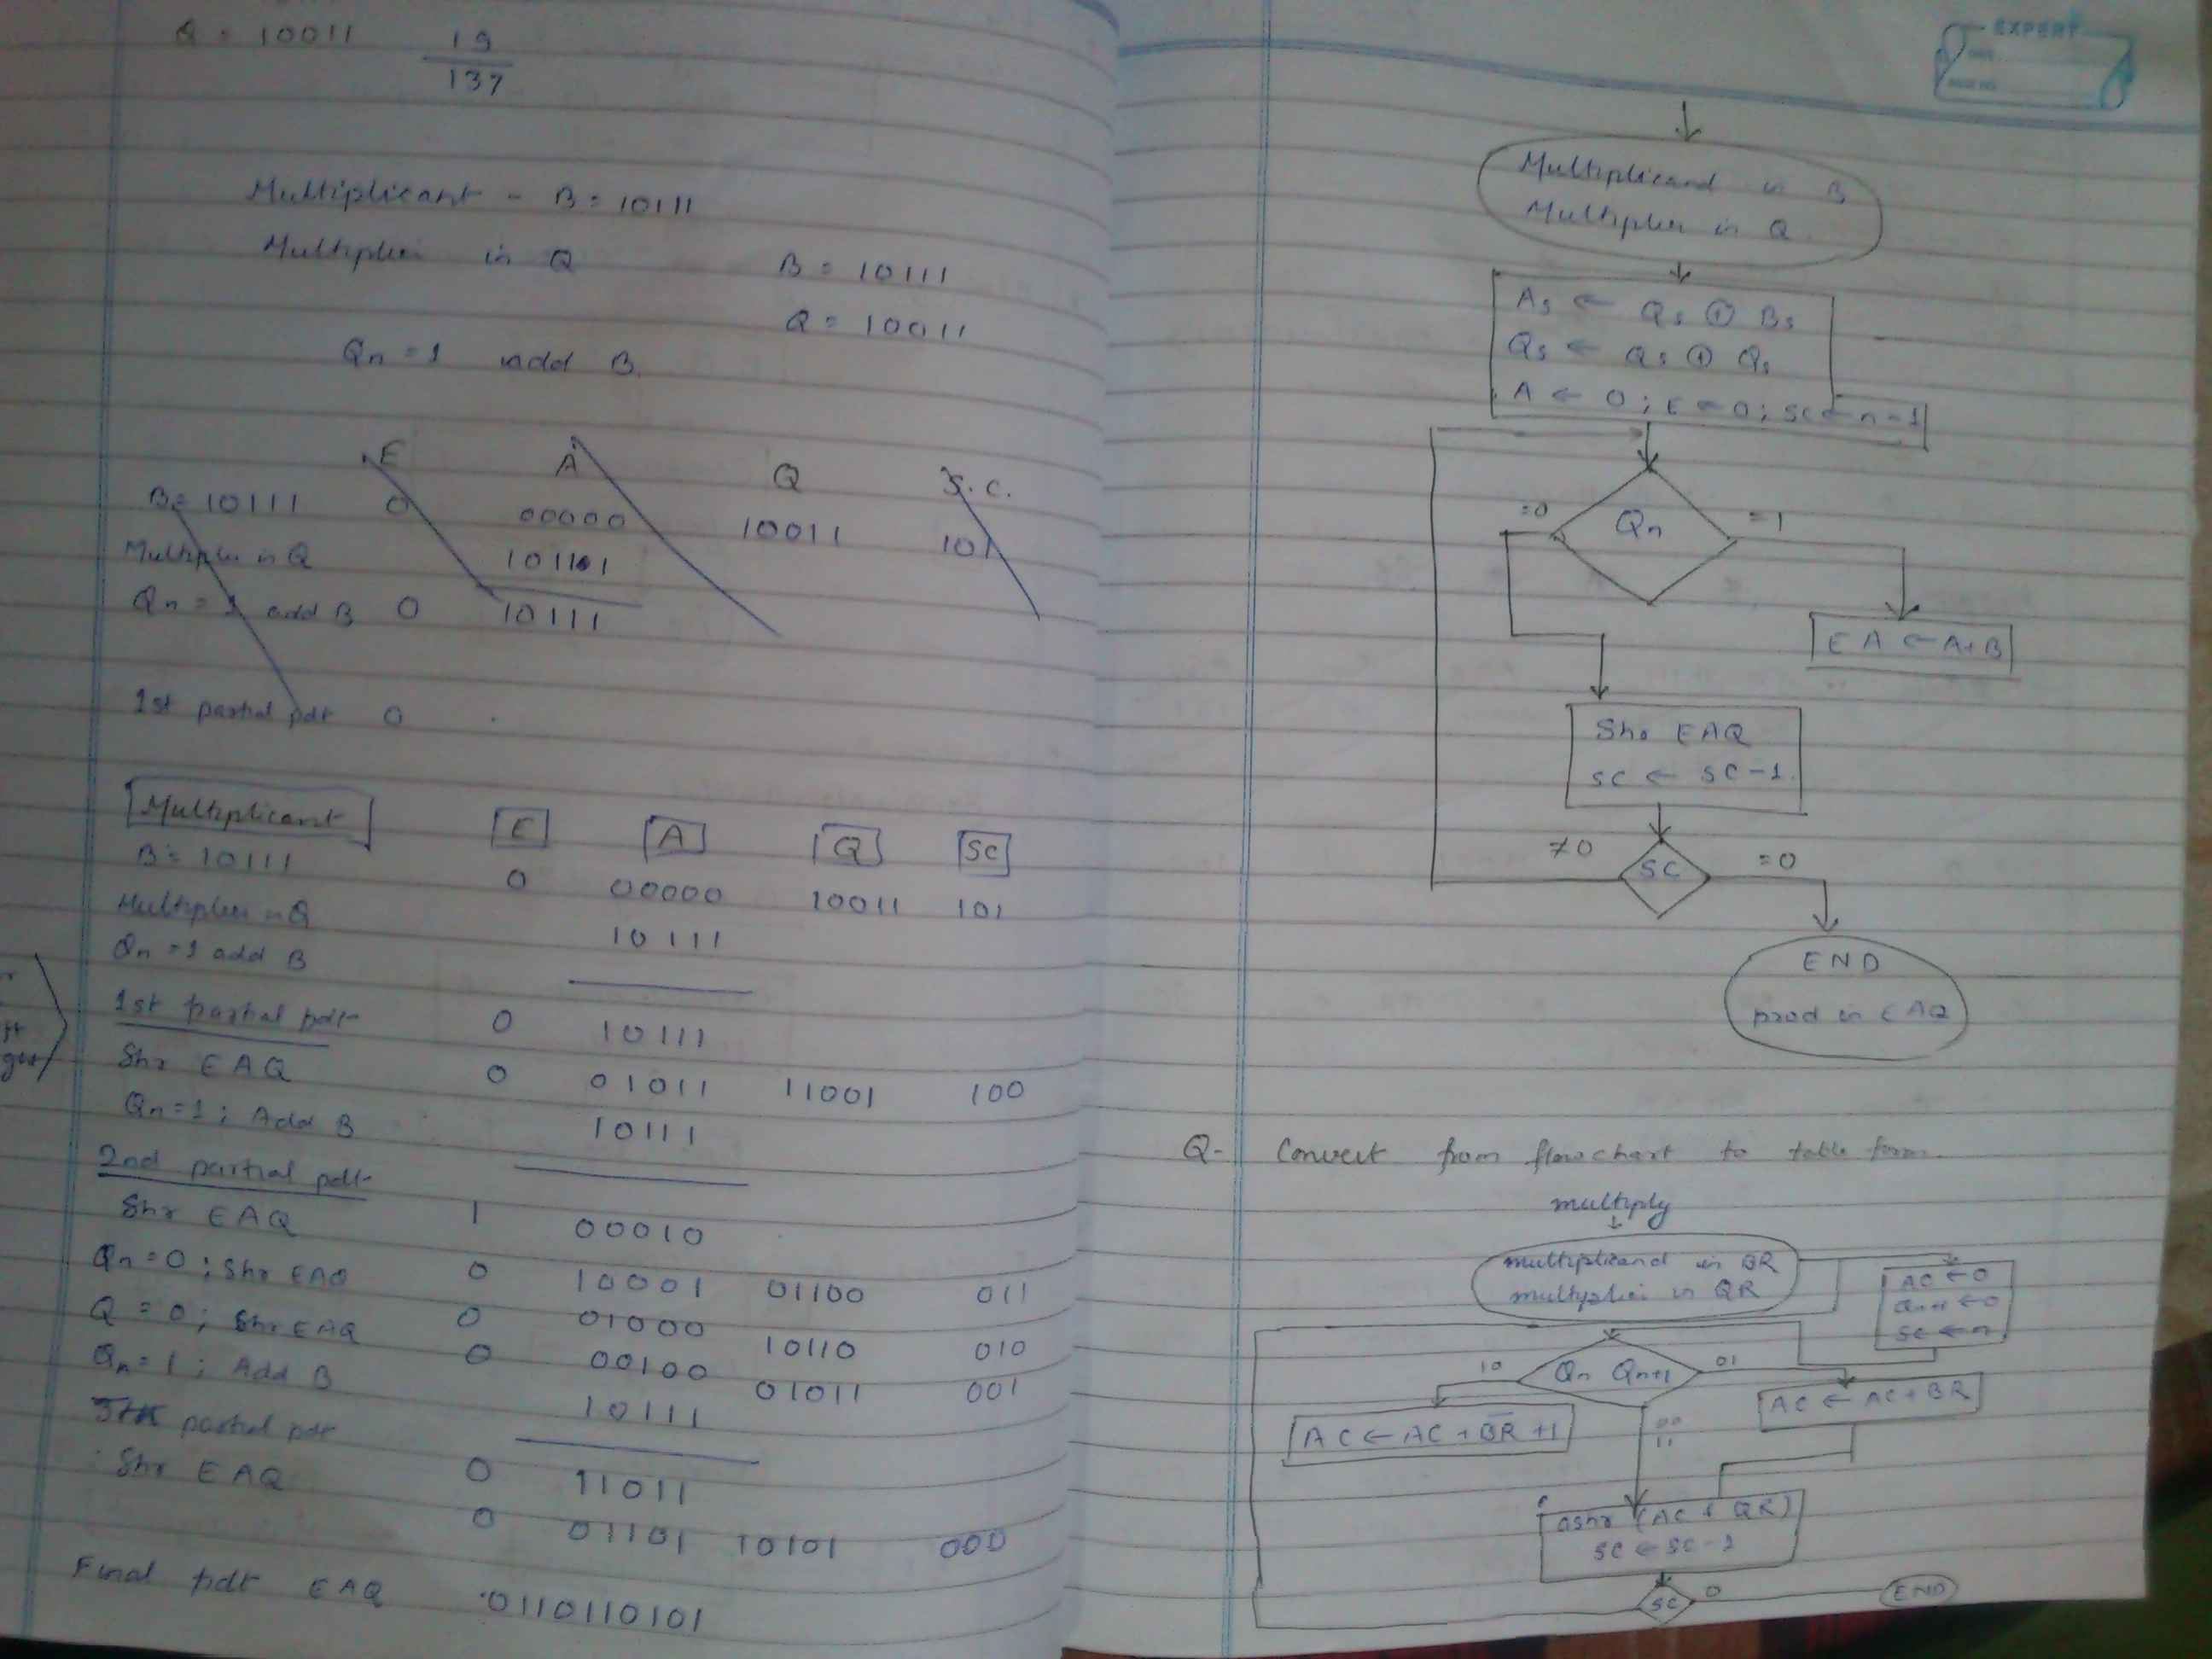 Q = 10011 19
137
Multiplicant - B = 10111
Multiplier in Q B = 10111
Q = 10011
Qn = 1 add B.
E A Q S.C.
B = 10111 0 00000 10011 101
Multiplier in Q
Qn = 1 add B 0 10111
1st partial pdt 0
Multiplicant E A Q SC
B = 10111 0 00000 10011 101
Multiplier in Q 10111
Qn = 1 add B
1st partial pdt 0 10111
Shr EAQ 0 01011 11001 100
Qn = 1 ; Add B 10111
2nd partial pdt
Shr EAQ 1 00010
Qn = 0 ; Shr EAQ 0 10001 01100 011
Q = 0 ; Shr EAQ 0 01000 10110 010
Qn = 1 ; Add B 0 00100 01011 001
10111
partial pdt
Shr EAQ 0 11011
0 01101 10101 000
Final pdt EAQ 0110110101
EXPERT
DATE
PAGE NO.
Multiplicand in B
Multiplier in Q.
As ← Qs ⊕ Bs
Qs ← Qs ⊕ Qs
A ← 0 ; E ← 0 ; SC ← n-1
=0 Qn =1
EA ← A+B
Shr EAQ
SC ← SC-1.
≠0 SC =0
END
prod in EAQ
Q- Convert from flowchart to table form.
multiply
multiplicand in BR
multiplier in QR
AC ← 0
Qn+1 ← 0
SC ← n
10 Qn Qn+1 01
AC ← AC + B̅R̅ +1
00
11
AC ← AC + BR
ashr (AC & QR)
SC ← SC-1
SC 0 END